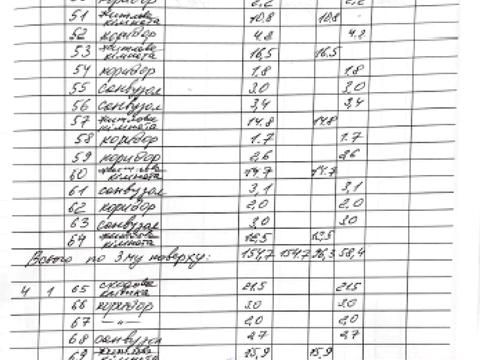 коридор 2,2 2,2
51 житлова кімната 10,8 10,8
52 коридор 4.2 4.2
53 житлова кімната 16,5 16,5
54 коридор 1.8 1.8
55 санвузол 3,0 3,0
56 санвузол 3,4 3,4
57 житлова кімната 14.8 14.8
58 коридор 1.7 1.7
59 коридор 2,6 2,6
60 житлова кімната 14.7 14.7
61 санвузол 3,1 3,1
62 коридор 2,0 2,0
63 санвузол 3,0 3.0
64 житлова кімната 12,5 12,5
Всього по 3му поверху: 154,7 154.7 96,3 58,4
4 1 65 сходова клітка 21.5 21.5
66 коридор 3.0 3.0
67 —"— 2,0 2,0
68 санвузол 2.7 2.7
69 житлова кімната 15,9 15,9